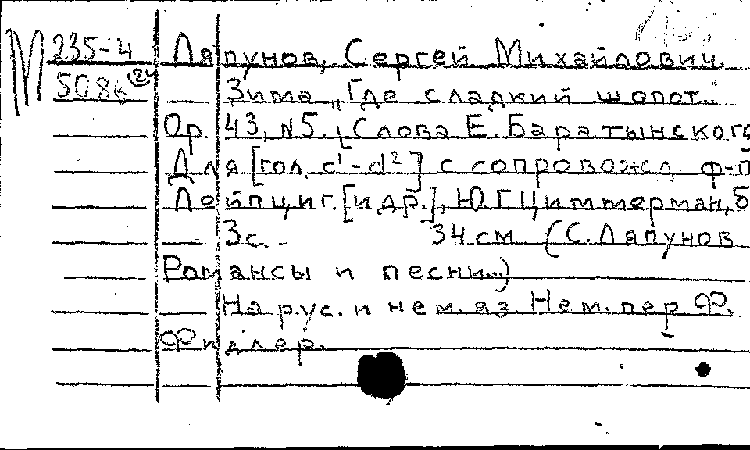 М 235-4 Ляпунов, Сергей Михайлович.
5086 Зима „Где сладкий шопот..
Ор. 43, №5. [Слова Е. Баратынского
Для [гол. c¹-d²] с сопровожд. ф-п
Лейпциг. [и др.], Ю.Г. Циммерман, б
3с. 34 см (С. Ляпунов
Романсы и песни...)
На рус. и нем. яз. Нем. пер. Ф.
Фидлер.